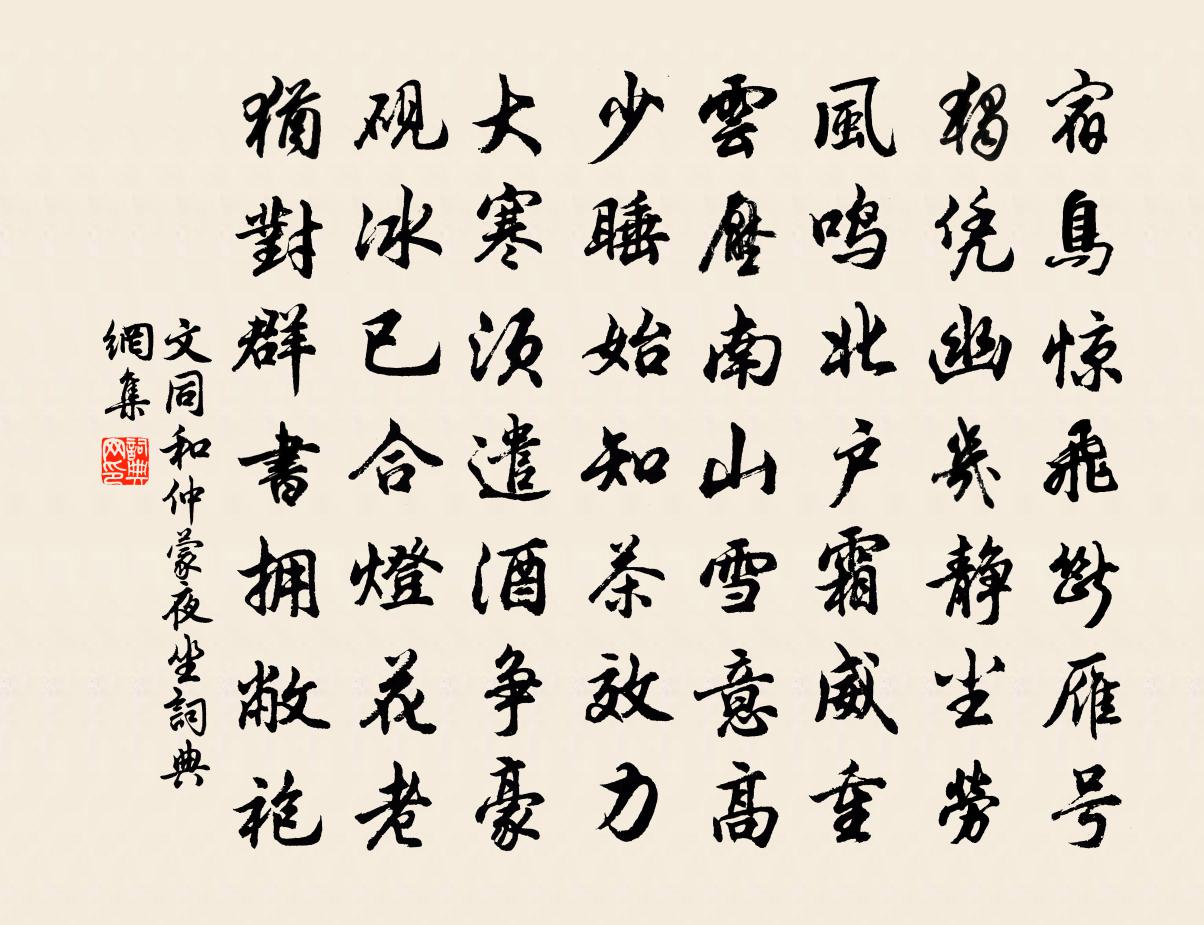 宿鳥惊飛斷雁号
獨凭幽幾靜坐勞
風鸣北户霜威重
雲壓南山雪意高
少睡始知茶效力
大寒須遣酒争豪
砚冰已合燈花老
猶對群書拥敝袍
文同和仲蒙夜坐詞典
網集
詞典网印